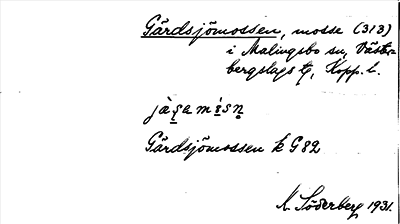 Gärdsjömossen, mosse (313)
i Malingsbo sn, Väster-
bergslags tg, Kopp. l.
Gärdsjömossen k G82
K. Söderberg 1931.